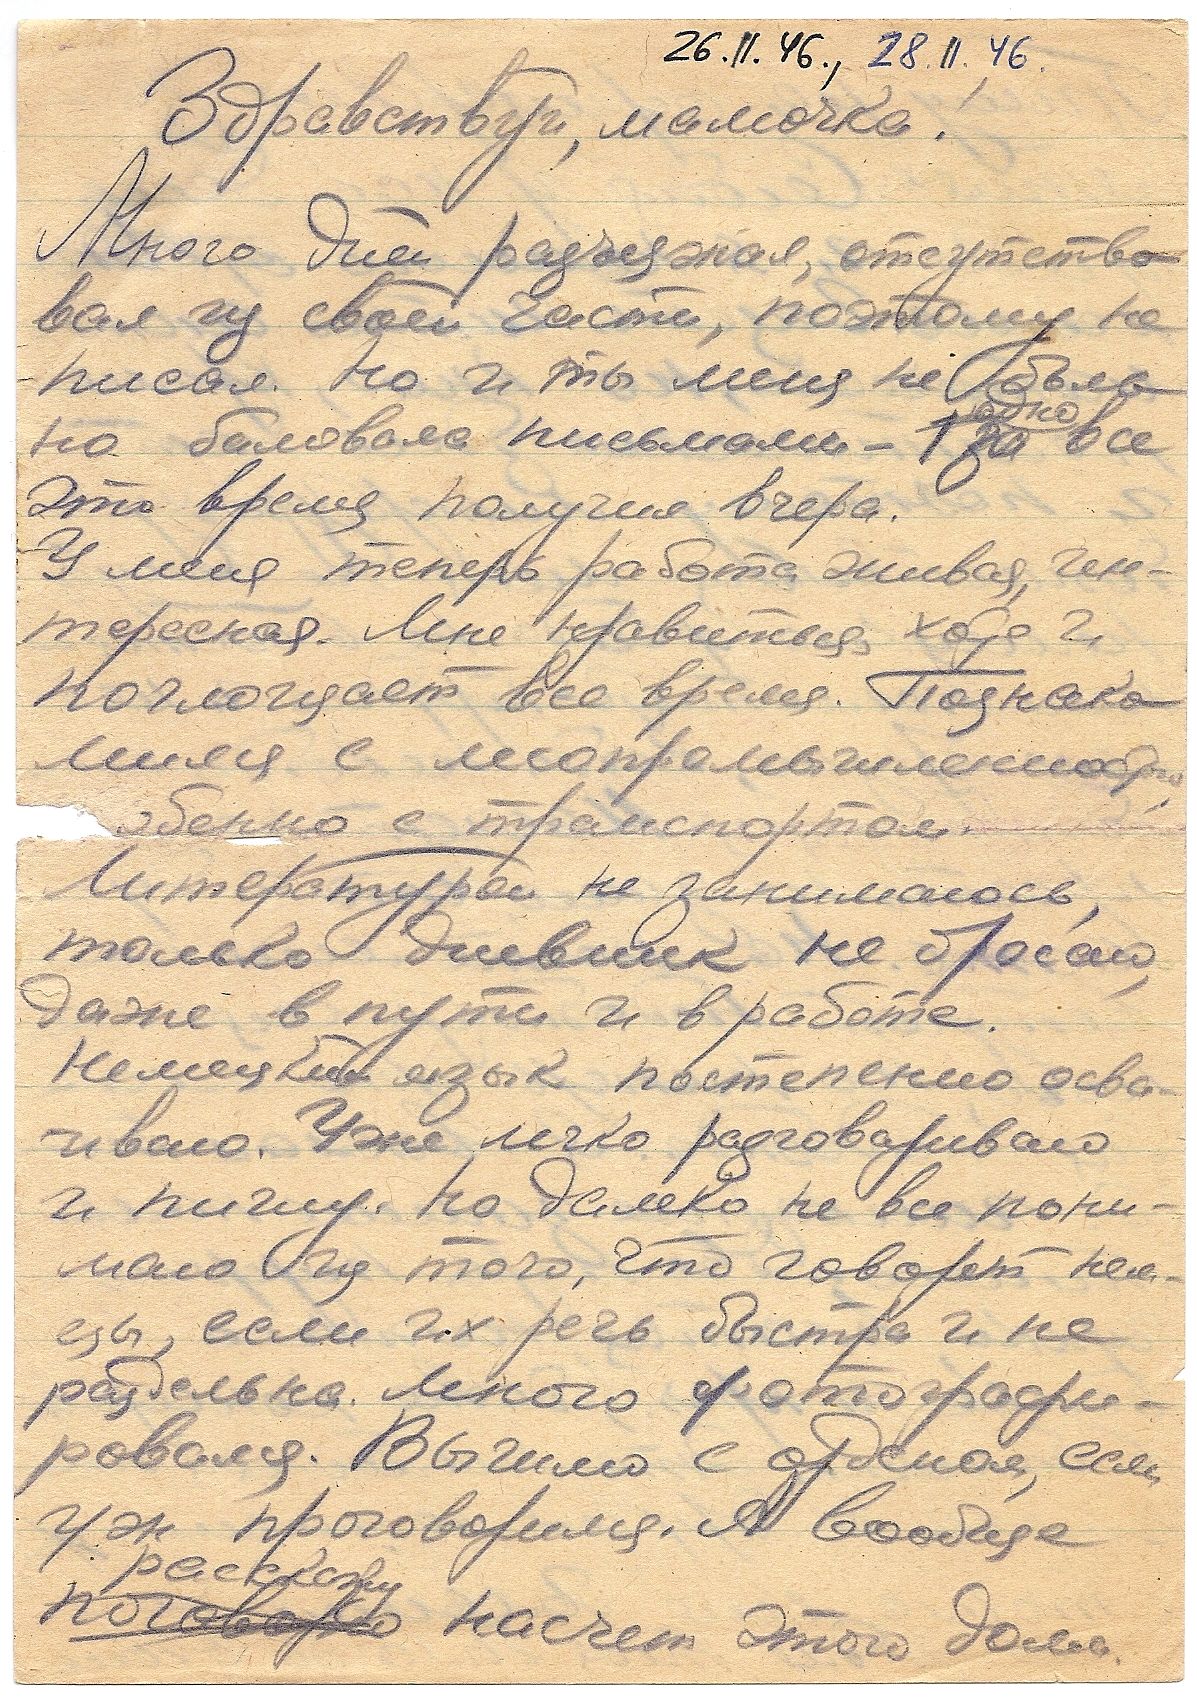 26.II.46., 28.II.46.
Здравствуй, мамочка!
Много дней разъезжая, отсутство-
вал из своей части, поэтому не
писал. Но и ты меня не
но баловала письмами - 1 одно за все
это время получил вчера.
У меня теперь работа живая, ин-
тересная. Мне нравиться, хоть и
поглощает все время. Познако-
мился с
обенно с транспортом.
Литературой не занимаюсь,
только дневник не бросаю,
даже в пути и в работе.
Немецкий язык постепенно осва-
иваю. Уже легко разговариваю
и пишу. Но далеко не все пони-
маю из того, что говорят нем-
цы, если их речь быстра и не
раздельна. Много фотографи-
ровался. Вышлю с орденом, если
уж проговорился. А вообще
расскажу
поговорю насчет этого дома.